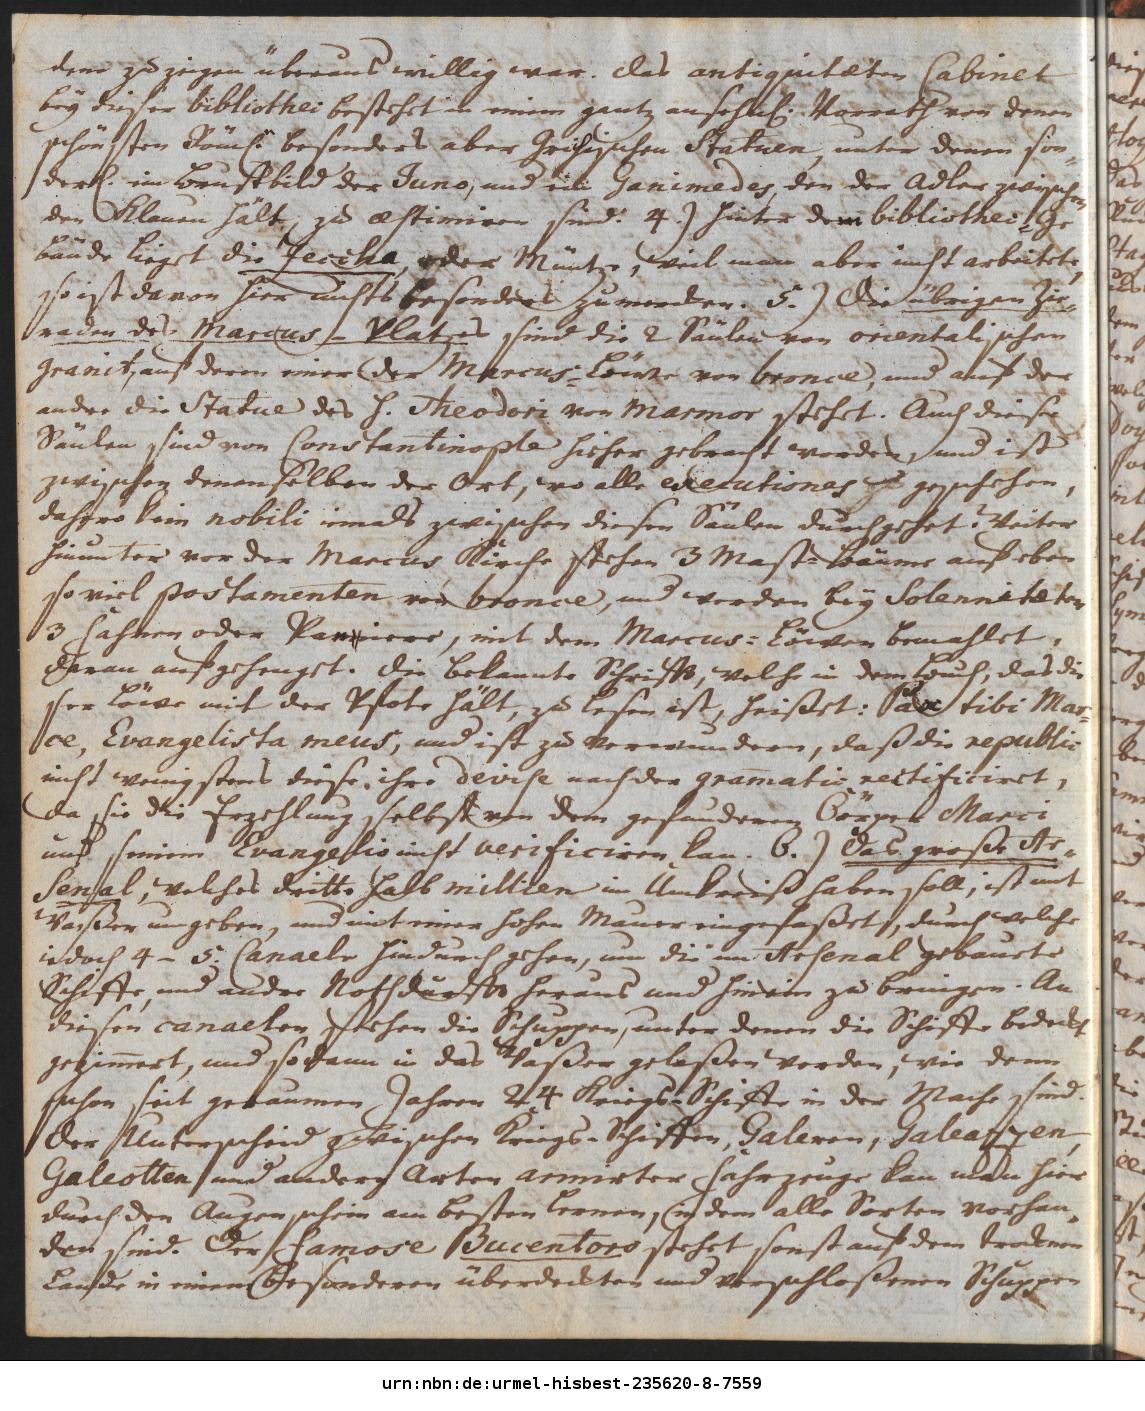 dene zu zeigen überaus willig war. das antiquitæten Cabinet
bey dieser bibliothec bestehet in einem gantz ansehnl. Vorrath von denen
schönsten Röm. besonders aber Grichischen Statuen, unter denen son-
derl. ein Brustbild der Juno, und ein Ganimedes, den der Adler zwischen
den Klauen hält, zu æstimiren sind. 4.) Hinter dem bibliothec-Ge-
bäude lieget die Zeccha, oder Müntze, weil man aber nicht arbeitete,
so ist davon hier nichts besonders zumerken. 5.) Die übrigen Zie-
raden des Marcus-Platzes sind die 2 Säulen von orientalischen
granit, auf deren einer der Marcus-Löwe von bronce, und auf der
andre die Statue des H. Theodori von Marmor stehet. Auch diese
Säulen sind von Constantinople hieher gebracht worden, und ist
zwischen denenselben der Ort, wo alle executiones geschehen,
dahero kein nobili iemals zwischen diesen Säulen durchgehet. Weiter
hinunter vor der Marcus Kirche stehen 3 Mast-Bäume auf eben
so viel postamenten von bronce, und werden bey Solennitæten
3 Fahnen oder Paniere, mit dem Marcus-Löwen bemahlet,
daran aufgehenget. Die bekannte Schrifft, welche in dem Buch, das die-
ser Löwe mit der Pfote hält, zu lesen ist, heißet: Pax tibi Mar-
ce, Evangelista meus, und ist zu verwundern, daß die republic
nicht wenigstens diese ihre devise nach der gramatic rectificiret,
da sie die Erzehlung selbst von dem gefundenen Cörper Marci
und seinem Evangelio nicht verificiren kan. 6.) Das große Ar-
senal, welches dritte halb millien im Umkreiß haben soll, ist mit
Waßer umgeben, und mit einer hohen Mauer eingefaßet, durch welche
iedoch 4-5. Canaele hindurch gehen, um die im Arsenal gebauete
Schiffe, und andre Nothdurfft heraus und hinein zu bringen. An
diesen canaelen stehen die Schuppen, unter denen die Schiffe bedeckt
gezimmert, und sodann in das Waßer gelaßen werden, wie denn
schon seit geraumen Jahren 24 Kriegs-Schiffe in der Mache sind.
Der Unterscheid zwischen Kriegs-Schiffen, Galeren, Galeazzen,
Galeotten und andern Arten armirter Fahrzeuge kan man hier
durch den Augenschein am besten lernen, indem alle Sorten vorhan-
den sind. Der famose Bucentoro stehet sonst auf dem trocknen
Lande in einem besonderen überdeckten und verschloßenen Schuppen
urn:nbn:de:urmel-hisbest-235620-8-7559